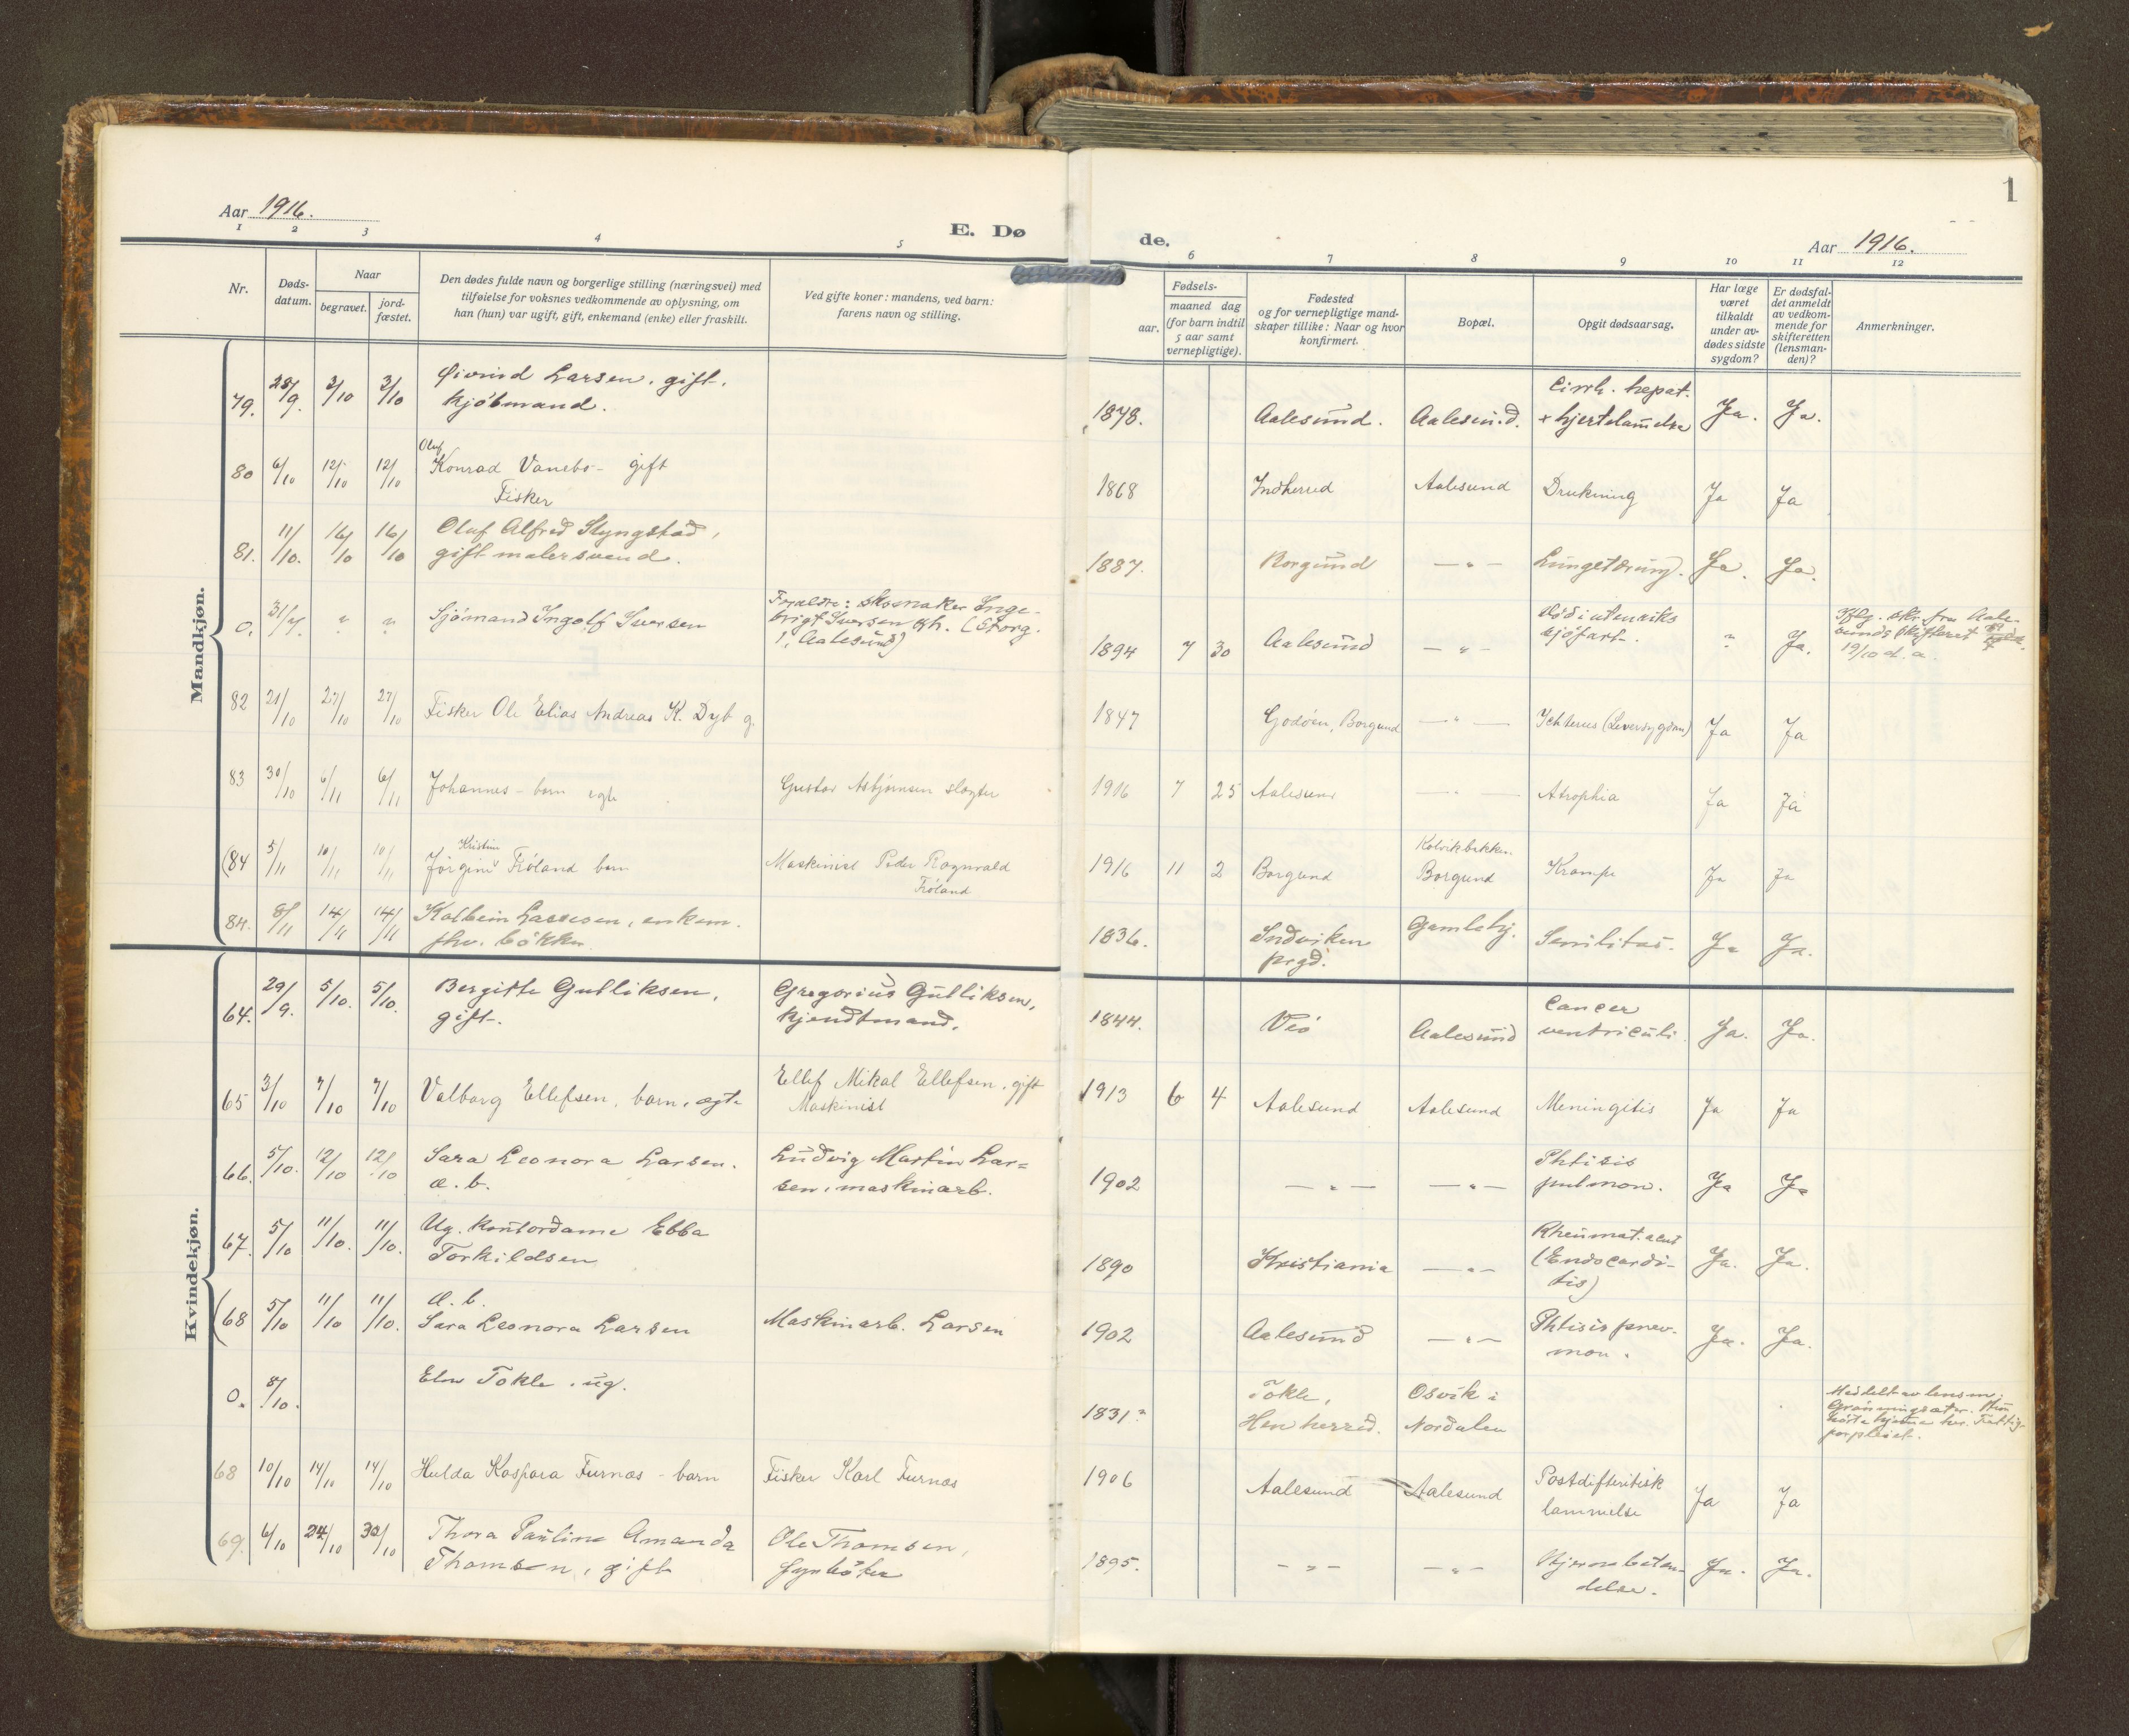 1
Aar 1916.
E. Dø
de.
Aar 1916.
1 2 3 4 5 6 7 8 9 10 11 12
Nr.
Døds-
datum.
Naar
begravet.
jord-
fæstet.
Den dødes fulde navn og borgerlige stilling (næringsvei) med
tilføielse for voksnes vedkommende av oplysning, om
han (hun) var ugift, gift, enkemand (enke) eller fraskilt.
Ved gifte koner: mandens, ved barn:
farens navn og stilling.
Fødsels-
aar.
maaned dag
(for barn indtil
5 aar samt
vernepligtige).
Fødested
og for vernepligtige mand-
skaper tillike: Naar og hvor
konfirmert.
Bopæl.
Opgit dødsaarsag.
Har læge
været
tilkaldt
under av-
dødes sidste
sygdom?
Er dødsfal-
det anmeldt
av vedkom-
mende for
skifteretten
(lensman-
den)?
Anmerkninger.
Mandkjøn.
79. 28/9. 3/10 3/10 Øivind Larsen, gift,
kjøbmand.
1878. Aalesund. Aalesund. Cirrh. hepat.
+ hjertelammelse Ja. Ja.
80 6/10 12/10 12/10 Oluf
Konrad Vanebo - gift
Fisker
1868 Indherred Aalesund Drukning Ja Ja
81. 11/10. 16/10 16/10 Oluf Alfred Slyngstad,
gift malersvend.
1887. Borgund — " — Lungetæring. Ja. Ja.
0. 31/7. " " Sjömand Ingolf Iversen
Forældre: skomaker Inge-
brigt Iversen gh. (Storg.
1, Aalesund)
1894 7 30 Aalesund — " — Død i utenriks
sjöfart. " Ja.
Iflg. skr. fra Aale-
sunds skifteret
19/10 d. a.
82 21/10 27/10 27/10 Fisker Ole Elias Andreas K. Dyb g.
1847 Godöen, Borgund — " — Ichterus (Leversygdom) Ja Ja
83 30/10 6/11 6/11 Johannes - barn egte
Gustav Asbjørnsen slagter
1916 7 25 Aalesund — " — Atrophia Ja Ja
(84 5/11 10/11 10/11 Kristine
Jörgine Fröland barn
Maskinist Peder Ragnvald
Fröland
1916 11 2 Borgund Kolvikbakken.
Borgund Krampe Ja Ja
84. 8/11 14/11 14/11 Kolbein Lassesen, enkem.
fhv. bökker
1836. Indviken
prgd. Gamlehj. Senilitas. Ja Ja.
Kvindekjøn.
64. 29/9. 5/10. 5/10. Bergitte Gulliksen,
gift.
Gregorius Gulliksen,
kjendtmand.
1844. Veö Aalesund Cancer
ventriculi. Ja. Ja.
65 3/10 7/10 7/10 Valborg Ellefsen, barn, ægte
Ellef Mikal Ellefsen, gift
Maskinist
1913 6 4 Aalesund Aalesund Meningitis Ja Ja
66. 5/10. 12/10 12/10 Sara Leonora Larsen.
æ. b.
Ludvig Martin Lar=
sen, maskinarb.
1902 — " — — " — Phtisis
pulmon. Ja Ja
67. 5/10 11/10. 11/10. Ug. kontordame Ebba
Torkildsen
1890 Kristiania — " — Rheumat. acut
(Endocardi-
tis) Ja. Ja.
(68 5/10 11/10 11/10. Æ. b.
Sara Leonora Larsen
Maskinarb. Larsen
1902 Aalesund — " — Phtisis pnev-
mon. Ja. Ja.
0. 8/10. Elen Tokle, ug.
1831? Tokle,
Hen herred. Osvik i
Nordalen
Meddelt av lensm.
Grönningsæter. Hun
her. Fattig-
forpleiet.
68 10/10 14/10 14/10 Hulda Kaspara Furnæs - barn
Fisker Karl Furnæs
1906 Aalesund Aalesund Postdifteritisk
lammelse Ja Ja
69. 6/10 24/10 30/10 Thora Pauline Amanda
Thomsen, gift
Ole Thomsen,
fyrböter
1895. — " — — " — Hjernebeten-
delse. Ja. Ja.